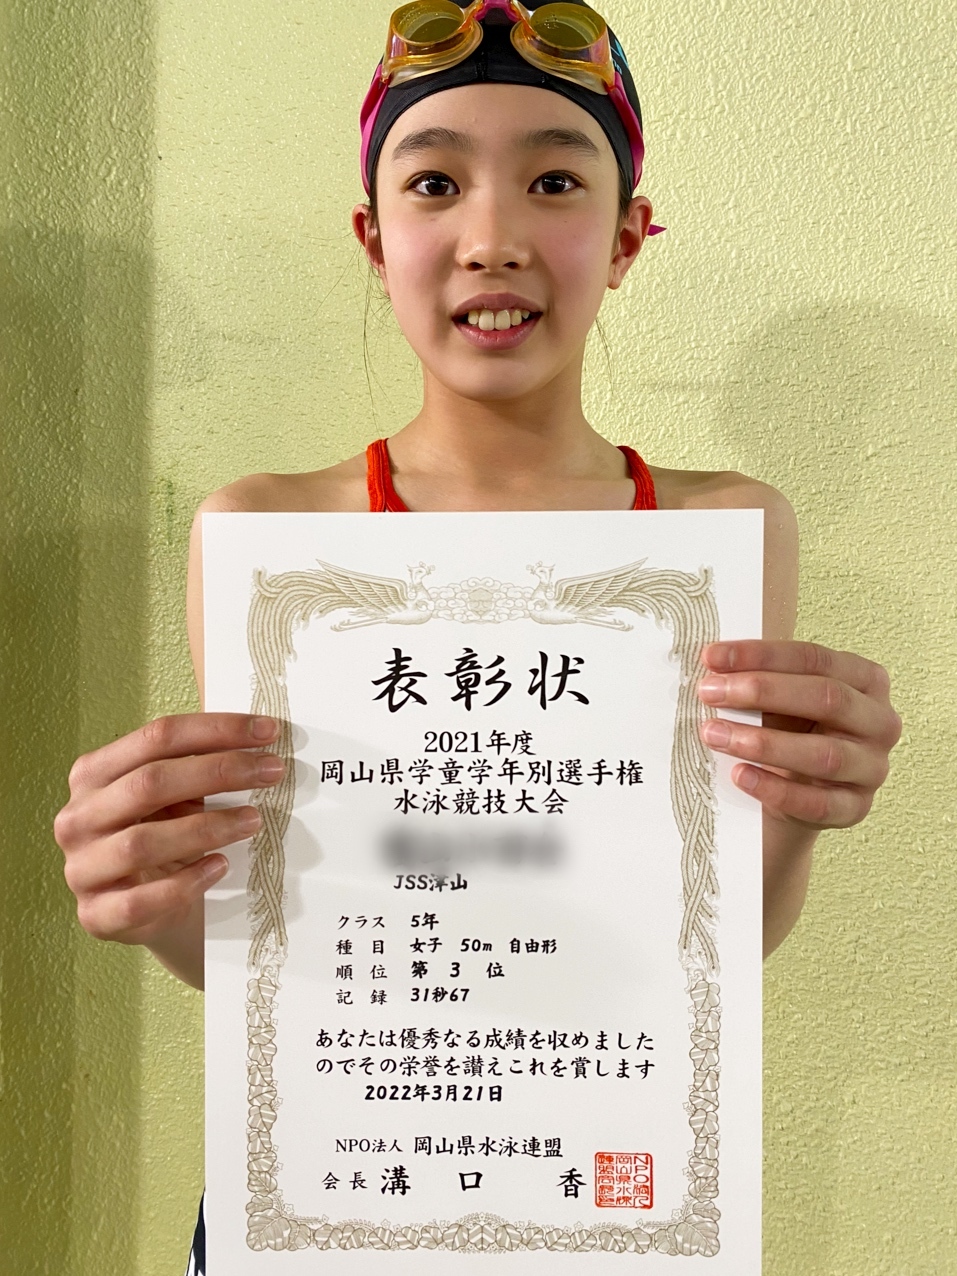 表彰状
2021年度
岡山県学童学年別選手権
水泳競技大会
JSS津山
クラス 5年
種目 女子 50m 自由形
順位 第 3 位
記録 31秒67
あなたは優秀なる成績を収めました
のでその栄誉を讃えこれを賞します
2022年3月21日
NPO法人 岡山県水泳連盟
会長 溝口 香